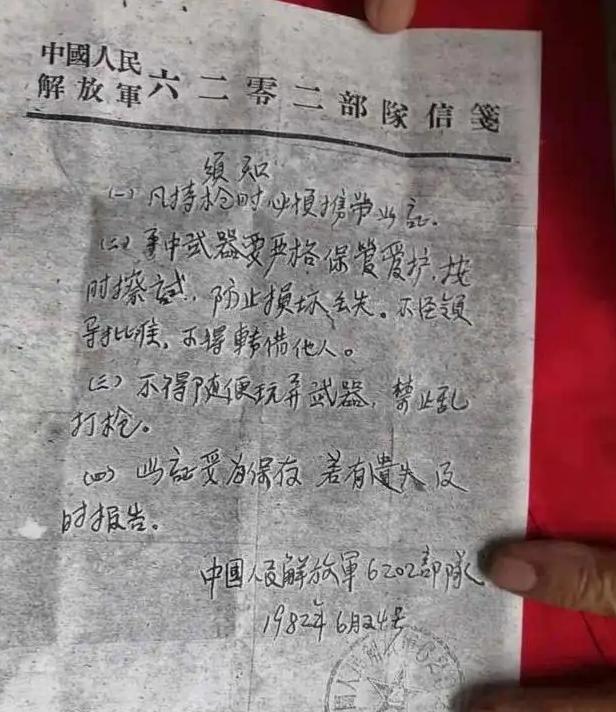 中國人民
解放軍六二零二部隊信箋
須知
(一)凡持枪时必須携带此証.
(二)手中武器要严格保管爱护,按
时擦試,防止损坏丢失。不经領
导批准,不得轉借他人。
(三)不得随便玩弄武器,禁止乱
打枪。
(四)此証妥为保存 若有遺失 及
时报告。
中國人民解放軍6202部隊
1982年6月24号